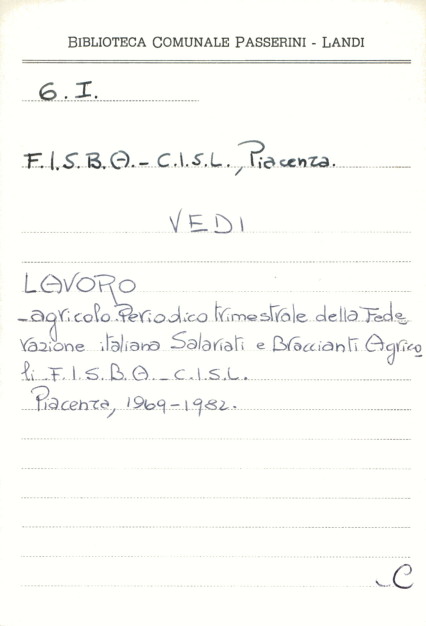 BIBLIOTECA COMUNALE PASSERINI - LANDI
6.I.
F.I.S.B.A.- C.I.S.L., Piacenza.
VEDI
LAVORO
-agricolo.Periodico trimestrale della Fede
razione italiana Salariati e Braccianti Agrico
li F.I.S.B.A.-C.I.S.L.
Piacenza, 1969-1982.
C